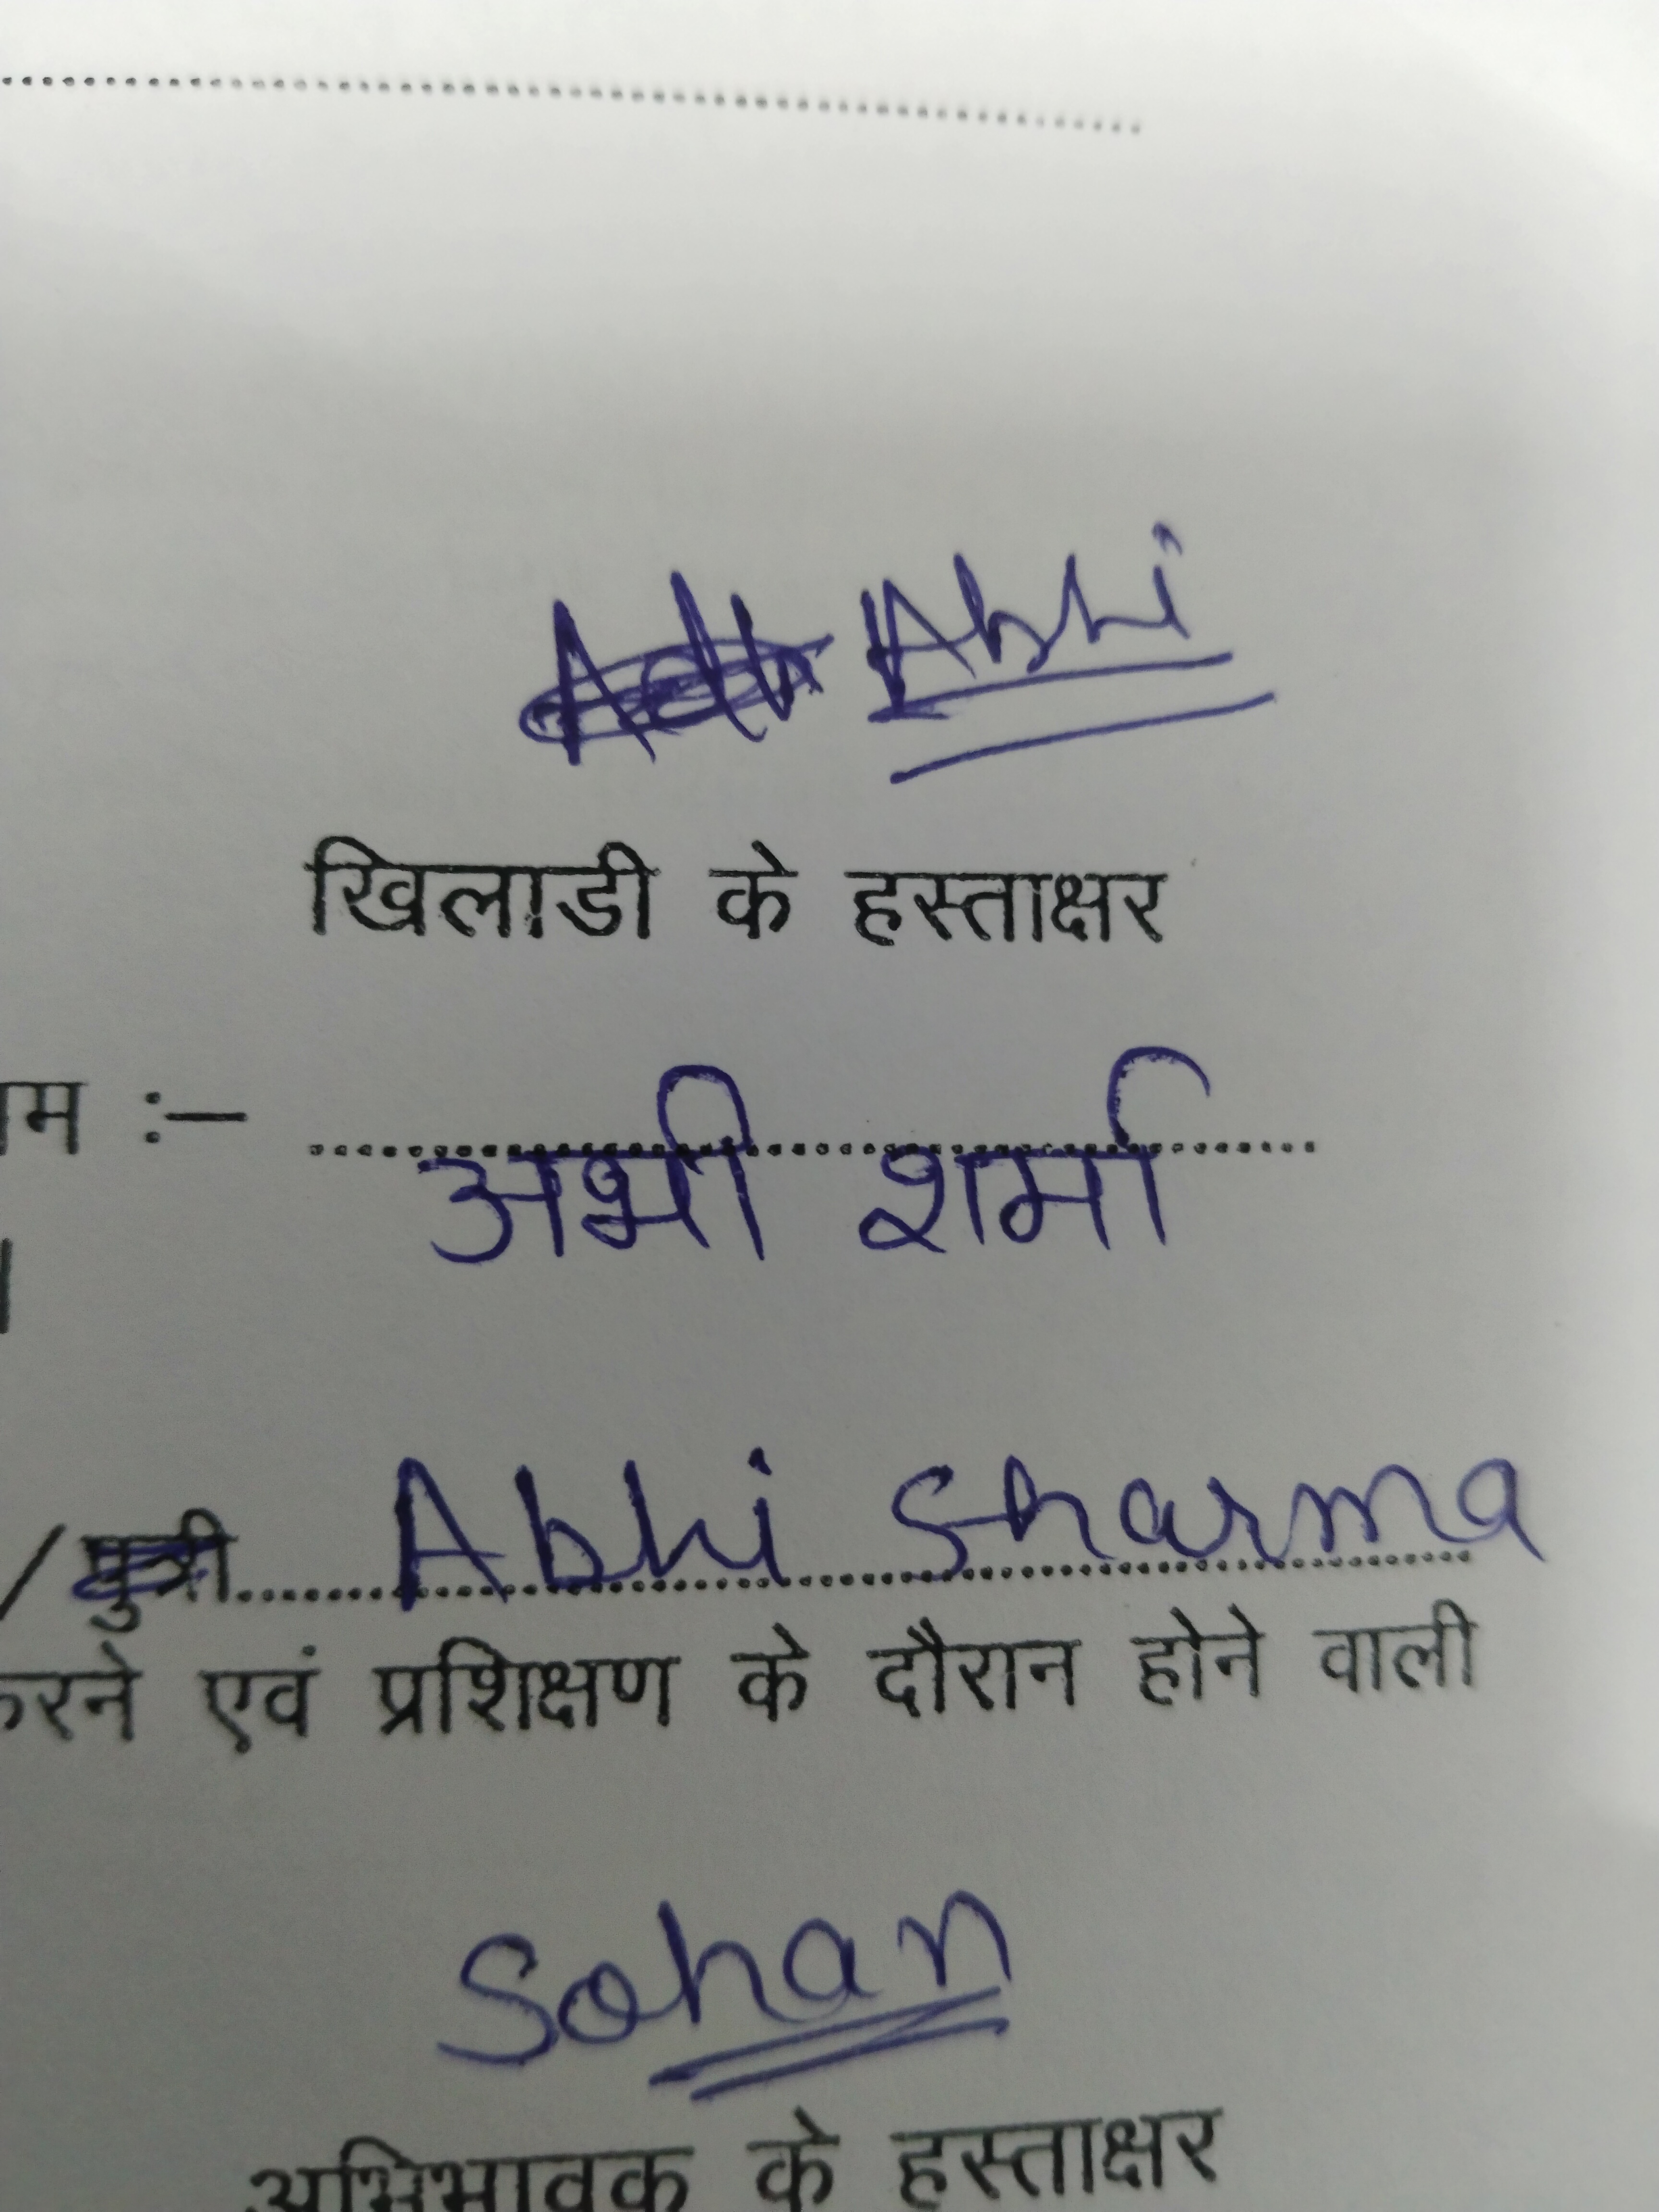 Abhi
खिलाडी के हस्ताक्षर
ाम :– अभी शर्मा
।
/ पुत्री Abhi Sharma
करने एवं प्रशिक्षण के दौरान होने वाली
Sohan
अभिभावक के हस्ताक्षर